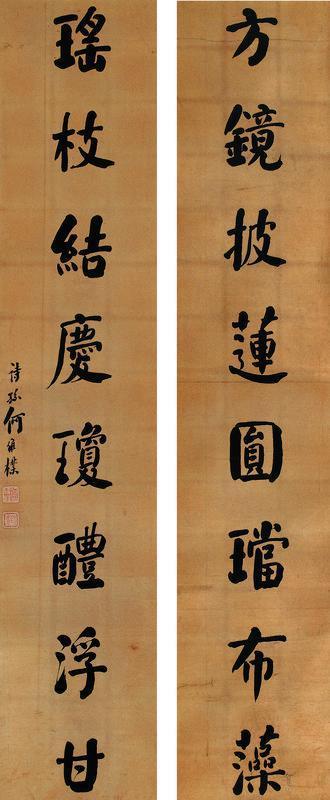 方鏡披蓮圓璫布藻
瑤枝結慶瓊醴浮甘
詩孫何維樸